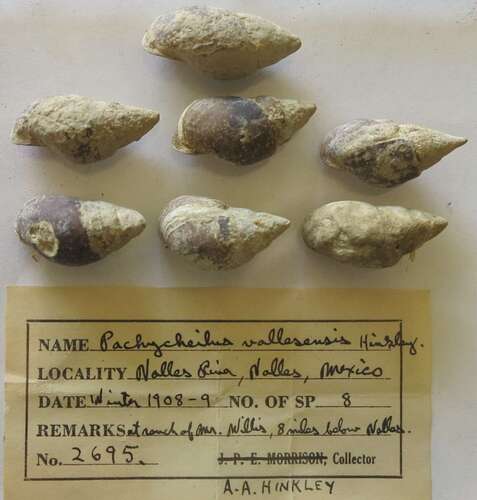 NAME Pachycheilus vallesensis Hinkley.
LOCALITY Valles River, Valles, Mexico
DATE Winter 1908-9 NO. OF SP. 8
REMARKS at ranch of Mr. Willis, 8 miles below Valles.
No. 2695. J. P. E. MORRISON, Collector
A.A. HINKLEY